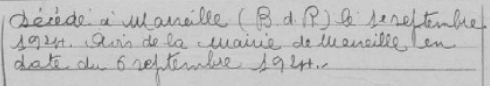 Décédé à Marseille (B. d. R) le 1er septembre
1924. Avis de la Mairie de Marseille en
date du 6 septembre 1924.